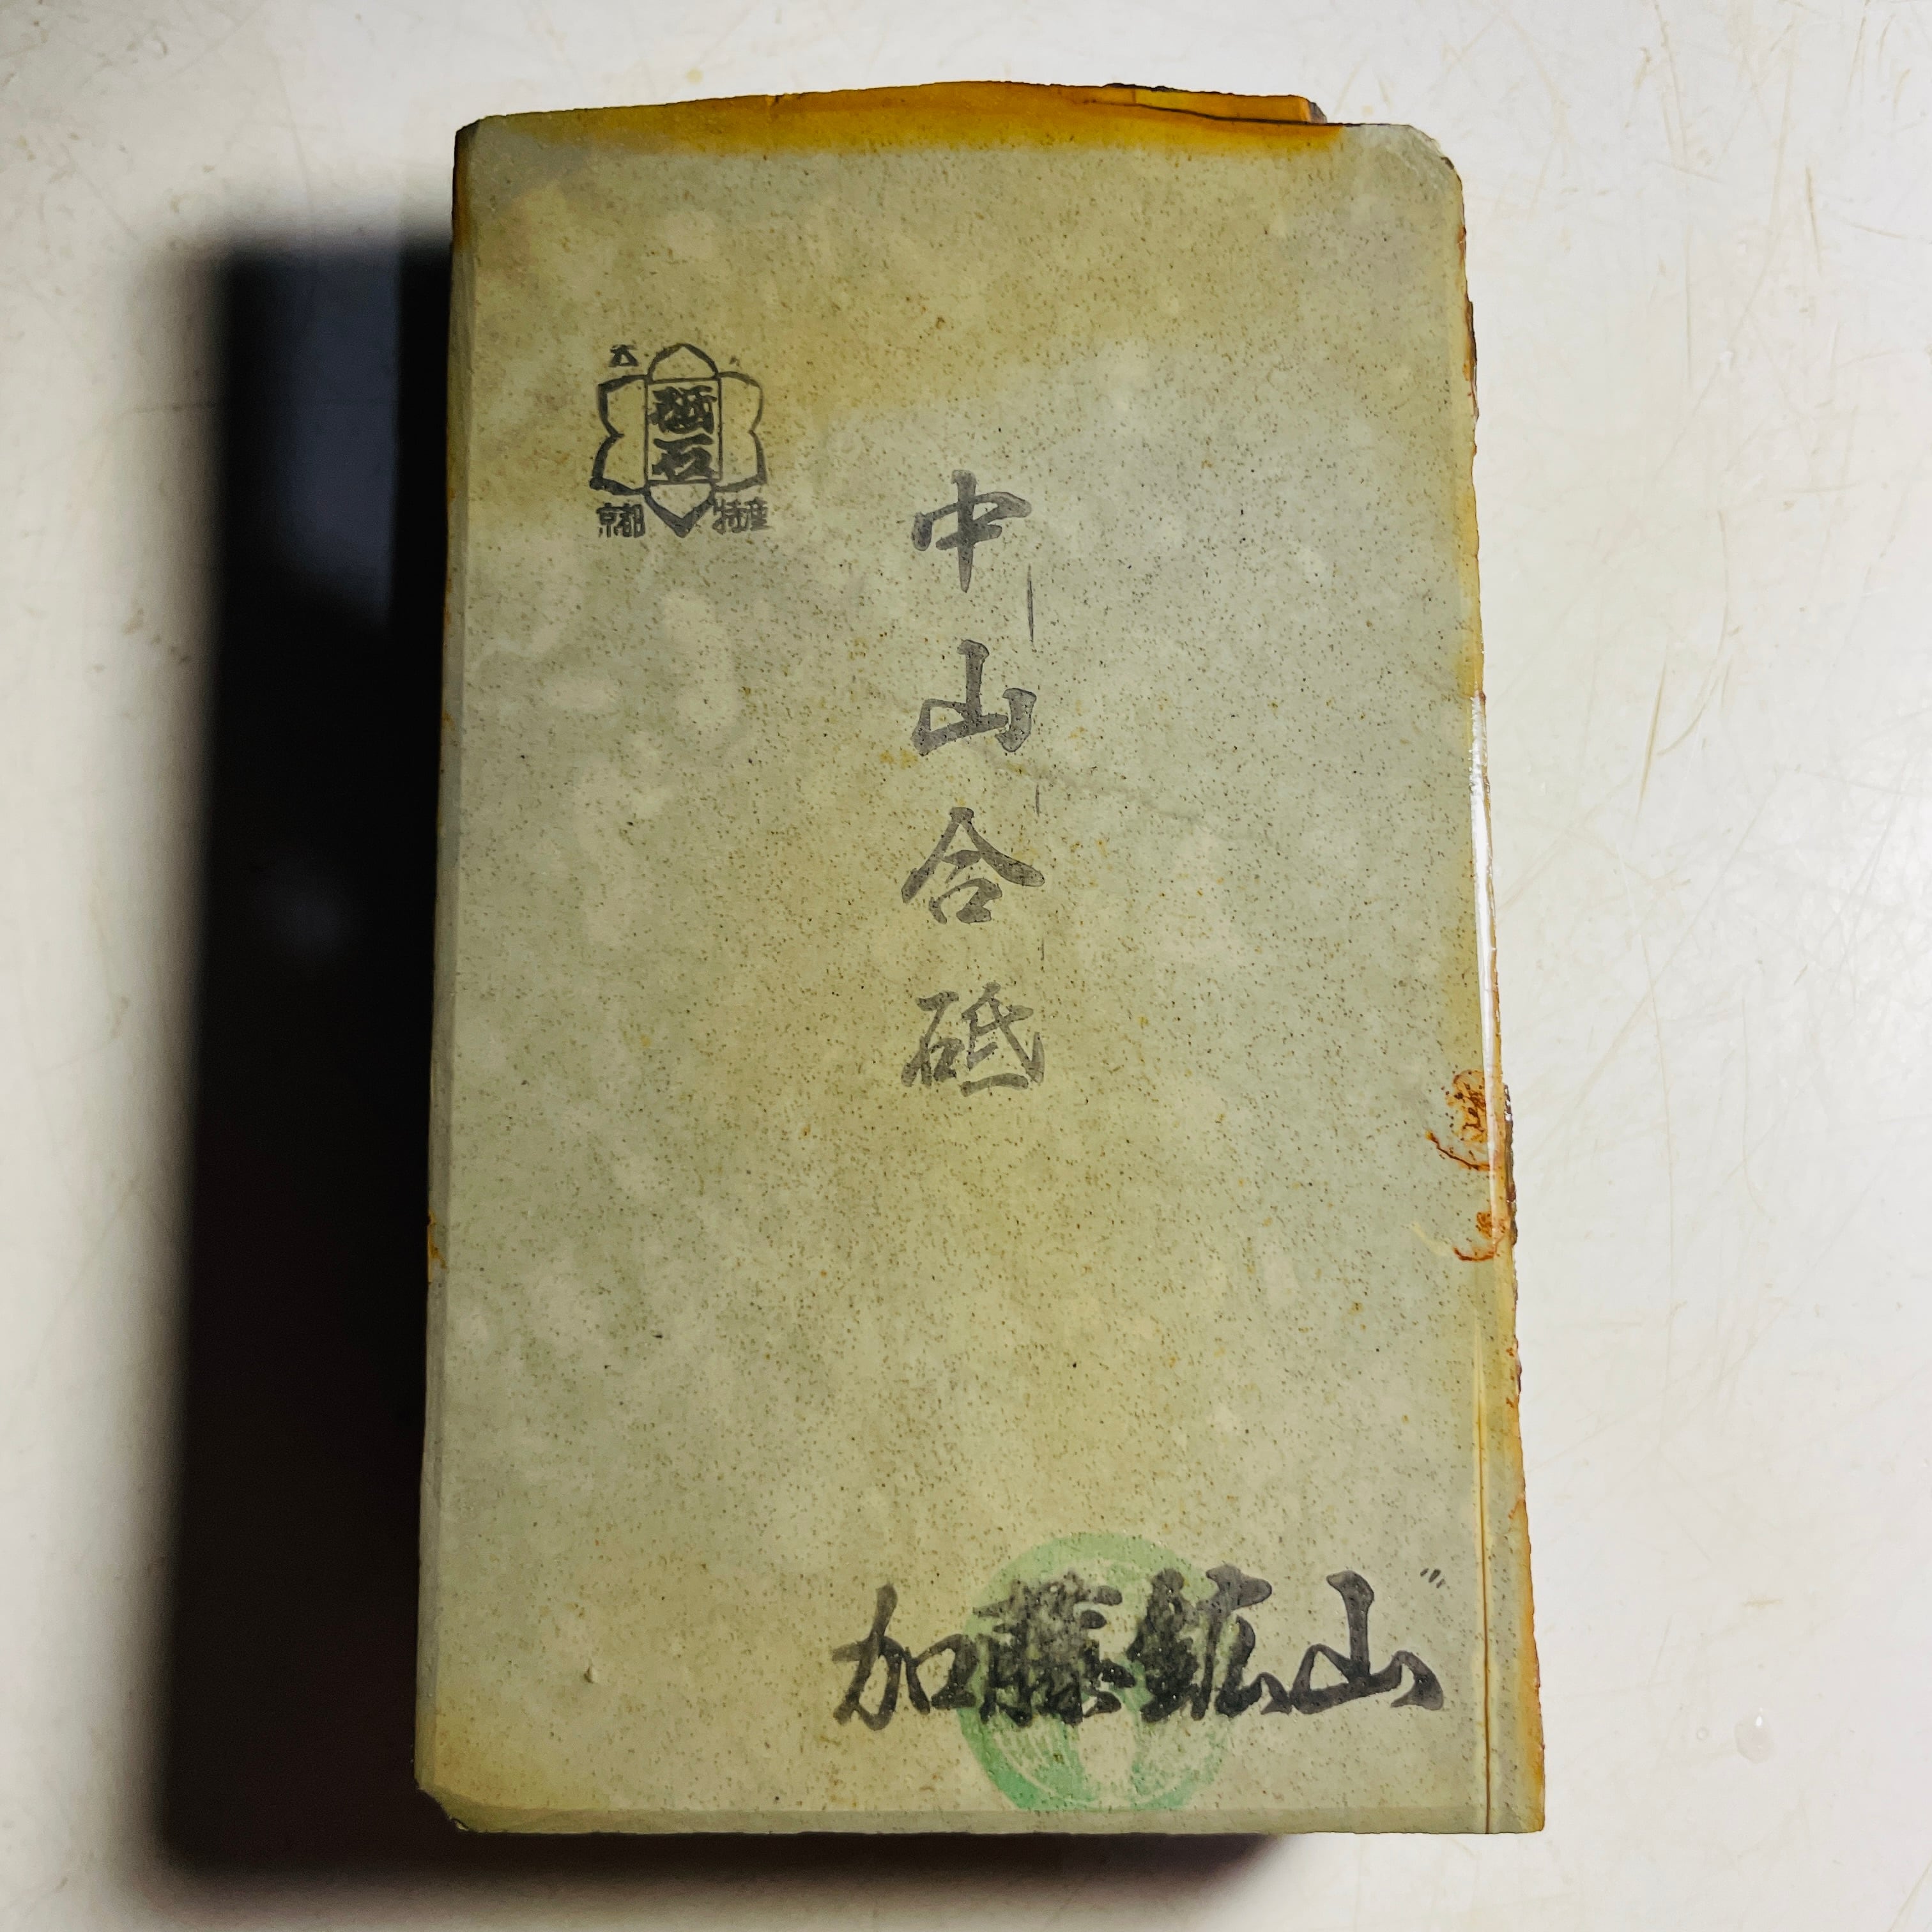 砥石
京都 特産
中山合砥
加藤鉱山